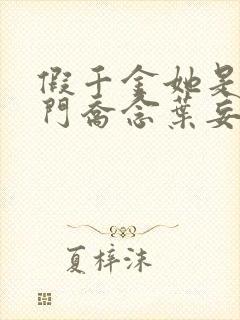 假千金她是
門喬念葉妄
夏梓沫